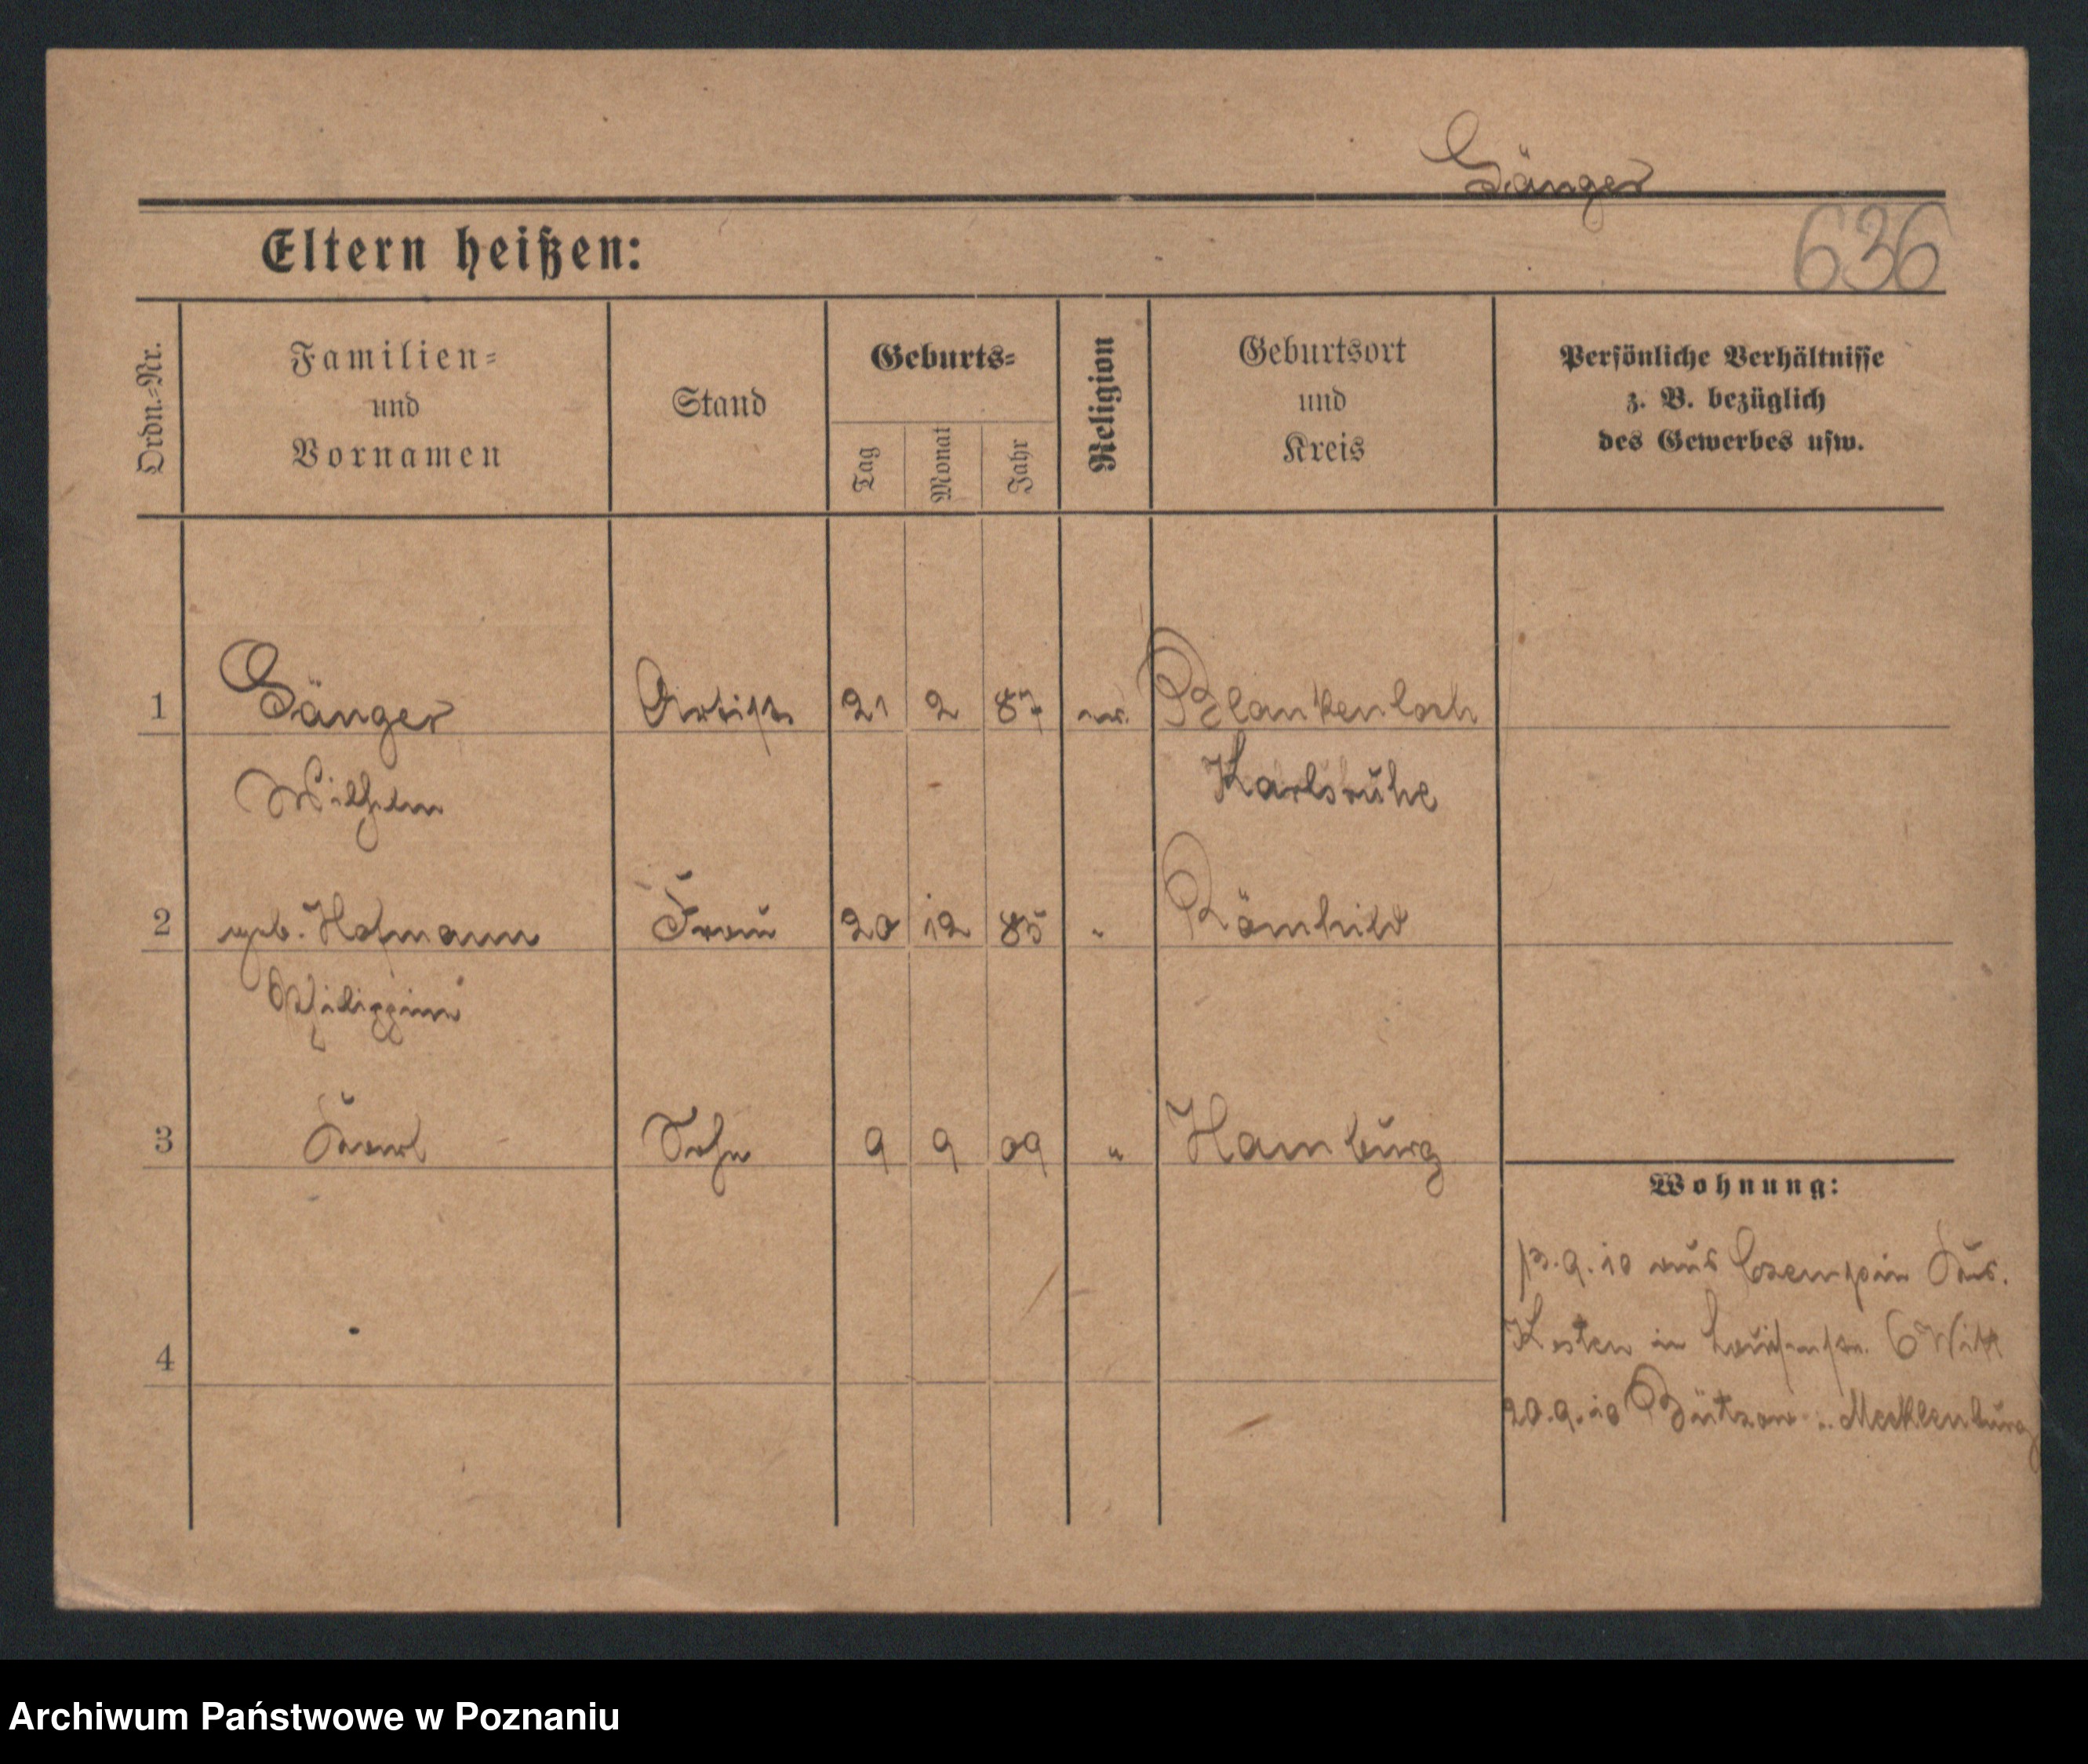 Sänger
Eltern heißen:
636
Ordn.=Nr.
Familien=
und
Vornamen
Stand
Geburts=
Tag
Monat
Jahr
Religion
Geburtsort
und
Kreis
Persönliche Verhältnisse
z. B. bezüglich
des Gewerbes usw.
1 Sänger Artist 21 2 87 ev. Blankenloch
Wilhelm Karlsruhe
2 geb. Hofmann Frau 20 12 85 " Römhild
Philippine
3 Karl Sohn 9 9 09 " Hamburg
Wohnung:
13.9.10 aus Czempin
Kosten in Louisenstr. 6
4
20.9.10 Bützow i. Mecklenburg
Archiwum Państwowe w Poznaniu